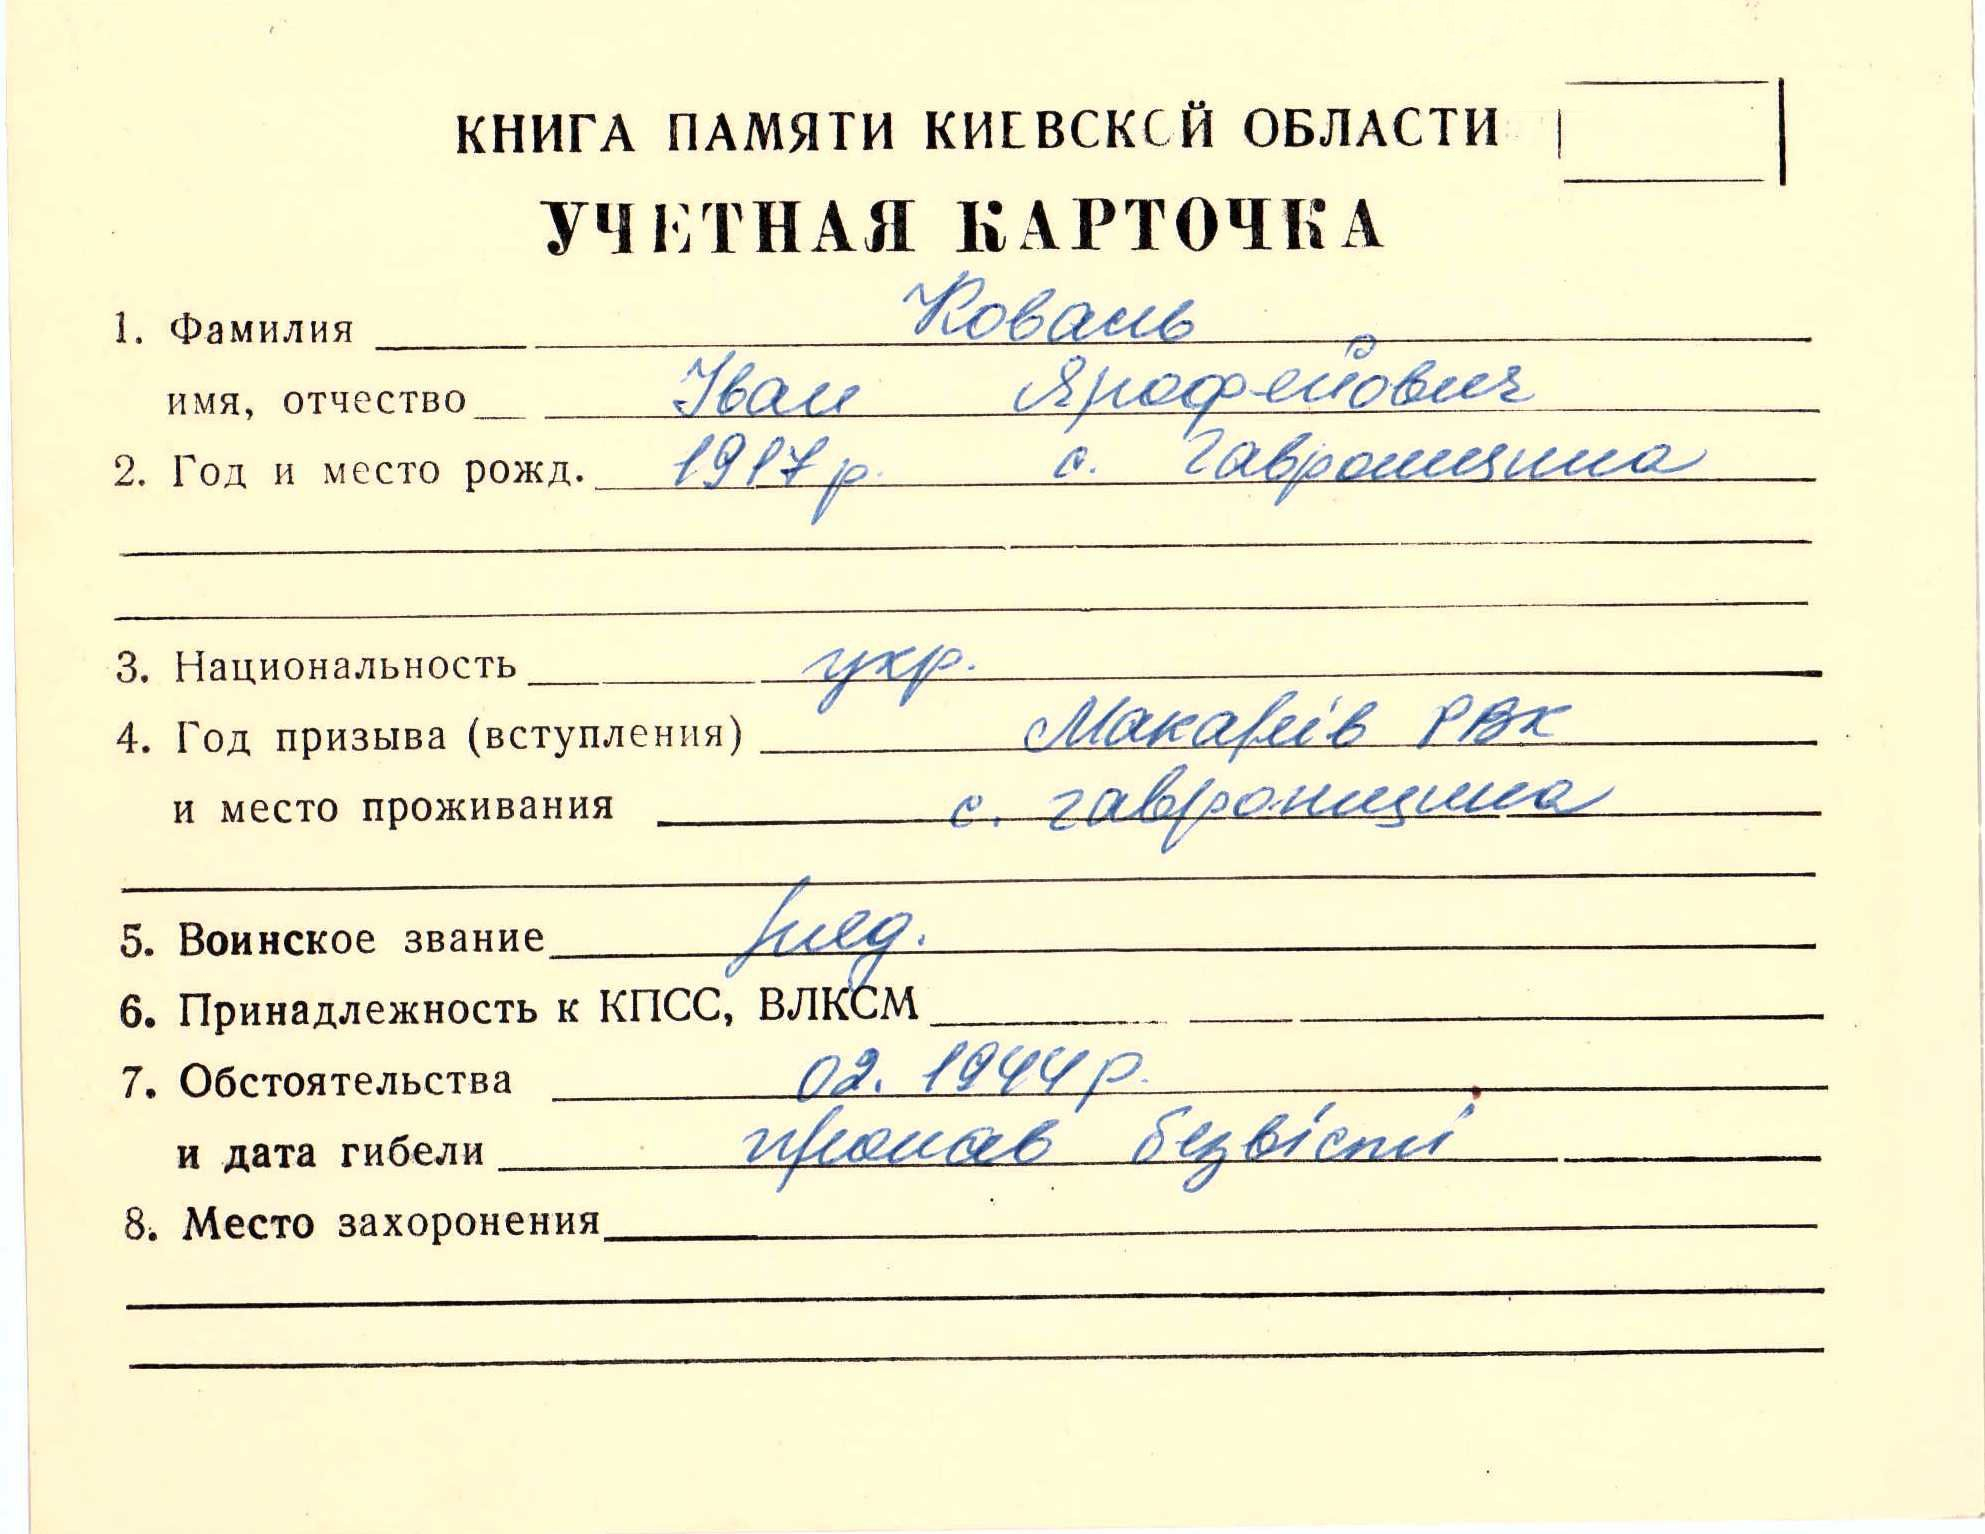 КНИГА ПАМЯТИ КИЕВСКОЙ ОБЛАСТИ
УЧЕТНАЯ КАРТОЧКА
1. Фамилия Коваль
имя, отчество Іван Ярофейович
2. Год и место рожд. 1917 р. с. Гавронщина
3. Национальность укр.
4. Год призыва (вступления) Макарів РВК
и место проживания с. Гавронщина
5. Воинское звание ряд.
6. Принадлежность к КПСС, ВЛКСМ
7. Обстоятельства 02. 1944 р.
и дата гибели пропав безвісті
8. Место захоронения